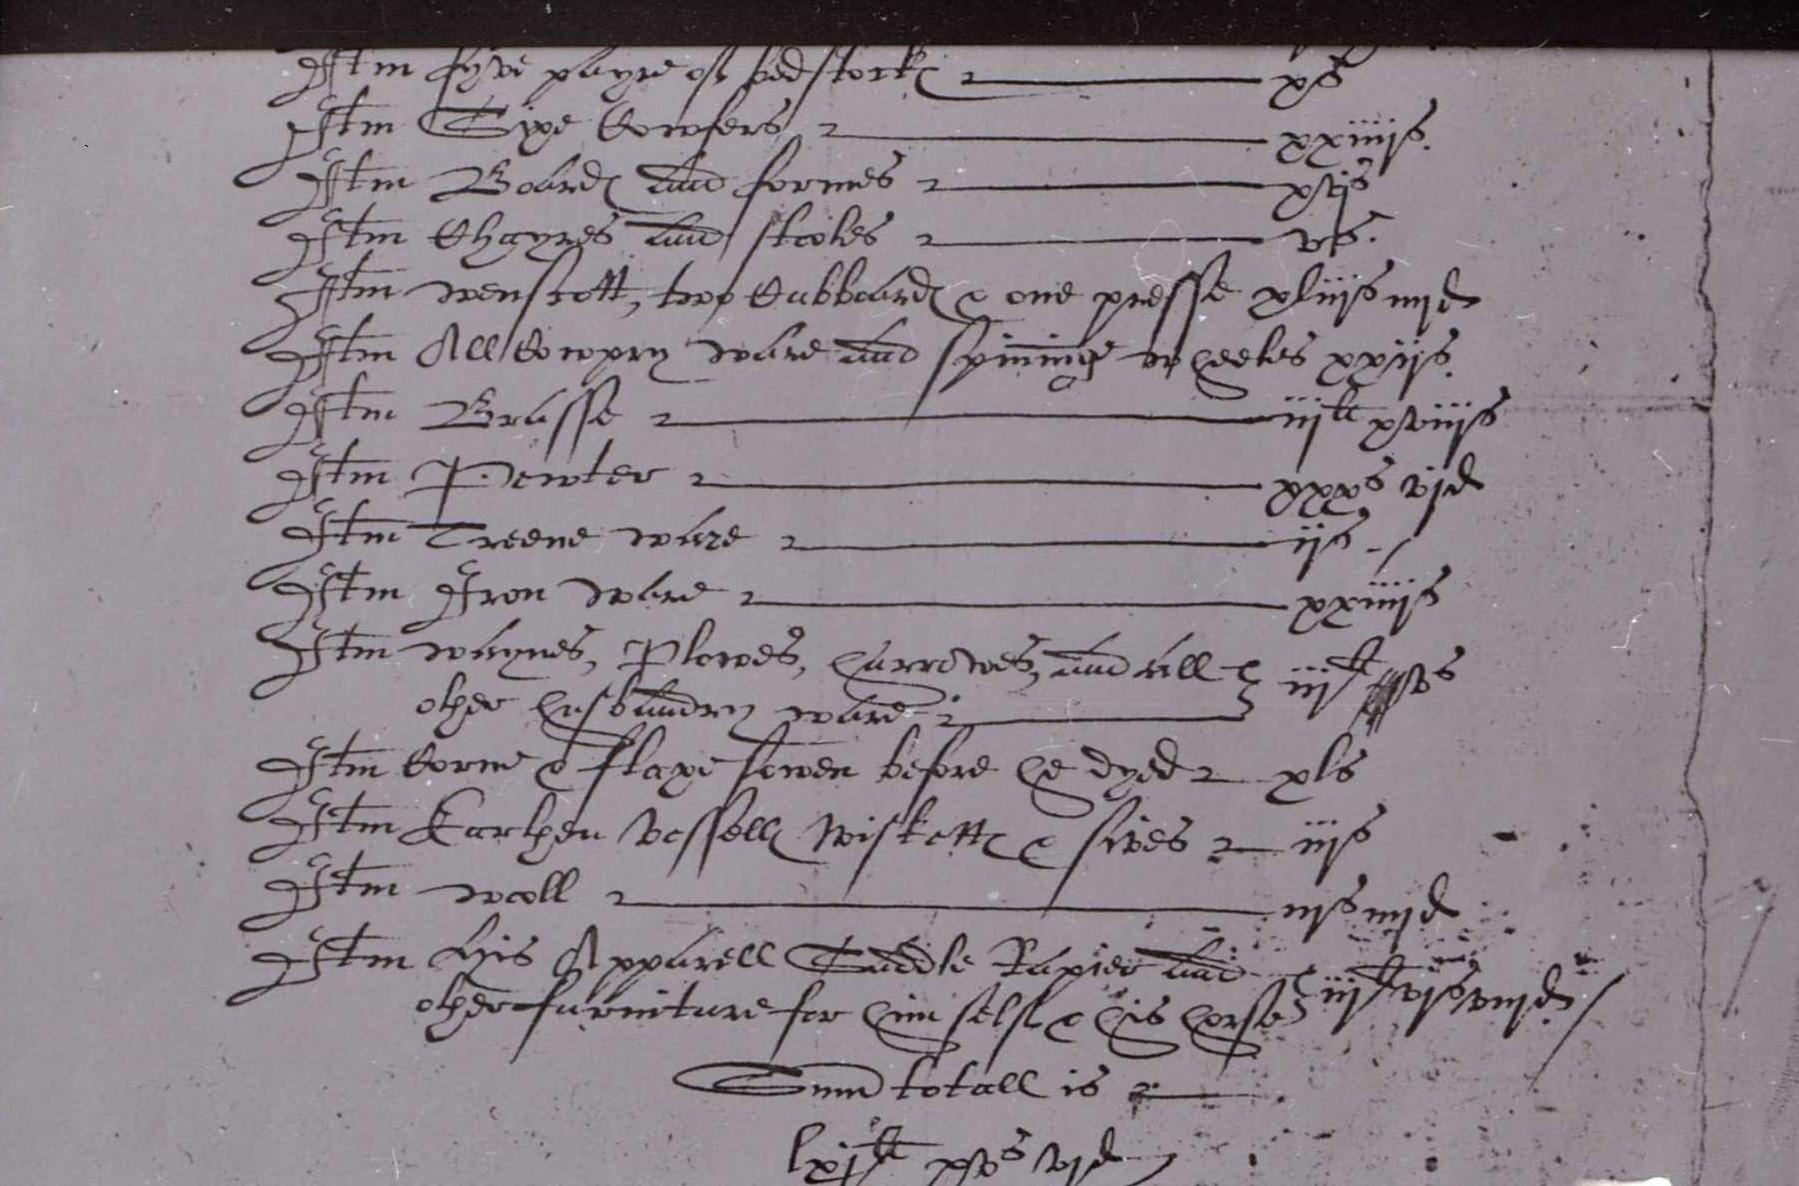 Itm fyve payre of bedstock(es) xs
Itm Sixe Cowfers xxiiijs.
Itm Boards and formes xvjs
Itm Chayres and stooles vs.
Itm wenscott, two Cubboards & one presse xliijs iiijd
Itm All Cowpry ware and spininge wheeles xxijs.
Itm Brasse iijli xviijs
Itm Pewter xxxs vjd
Itm Treene ware ijs
Itm Iron ware xxiiijs
Itm waynes, Plowes, harrowes, and all
other husbandry ware iijli xvs
Itm Corne & flaxe sowen before he dyed xls
Itm Earthen vessells wisketts & sives iijs
Itm wooll iijs iiijd
Itm his Apparell Saddle Rapier and
other furniture for him self & his horse iijli vjs viijd
Sum totall is
lxjli xvs vjd